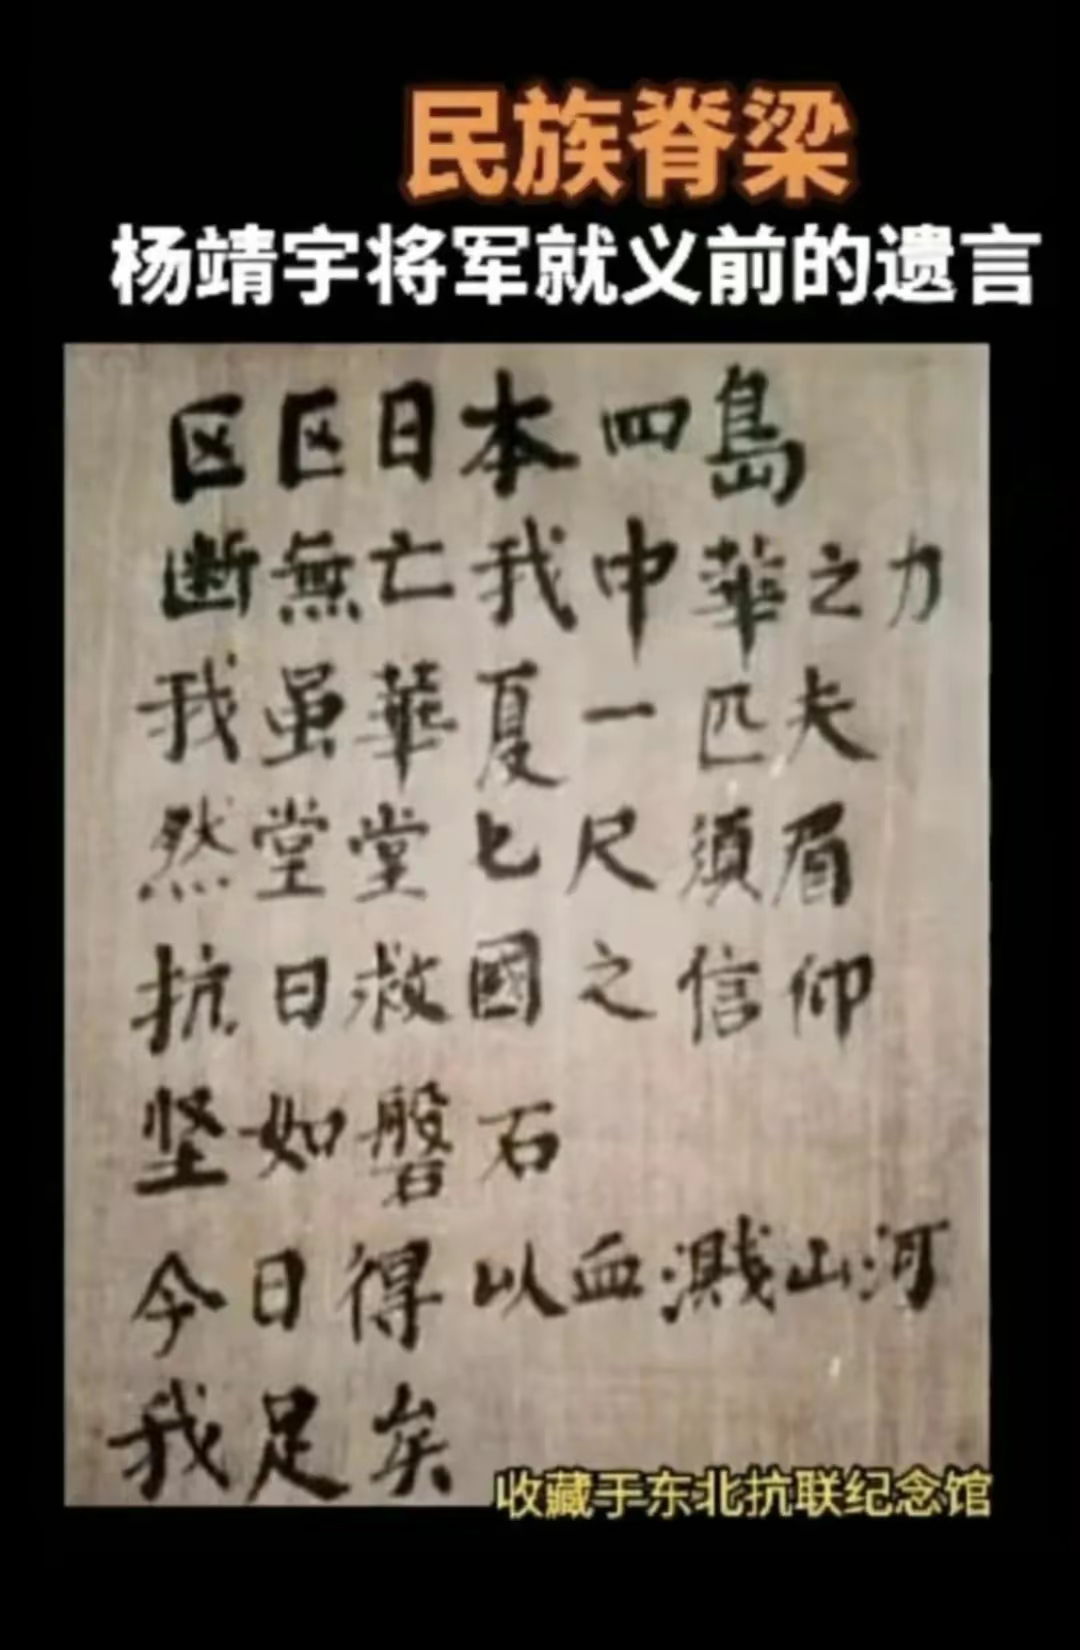 民族脊梁
杨靖宇将军就义前的遗言
区区日本四島
断無亡我中華之力
我虽華夏一匹夫
然堂堂七尺須眉
抗日救國之信仰
坚如磐石
今日得以血濺山河
我足矣
收藏于东北抗联纪念馆